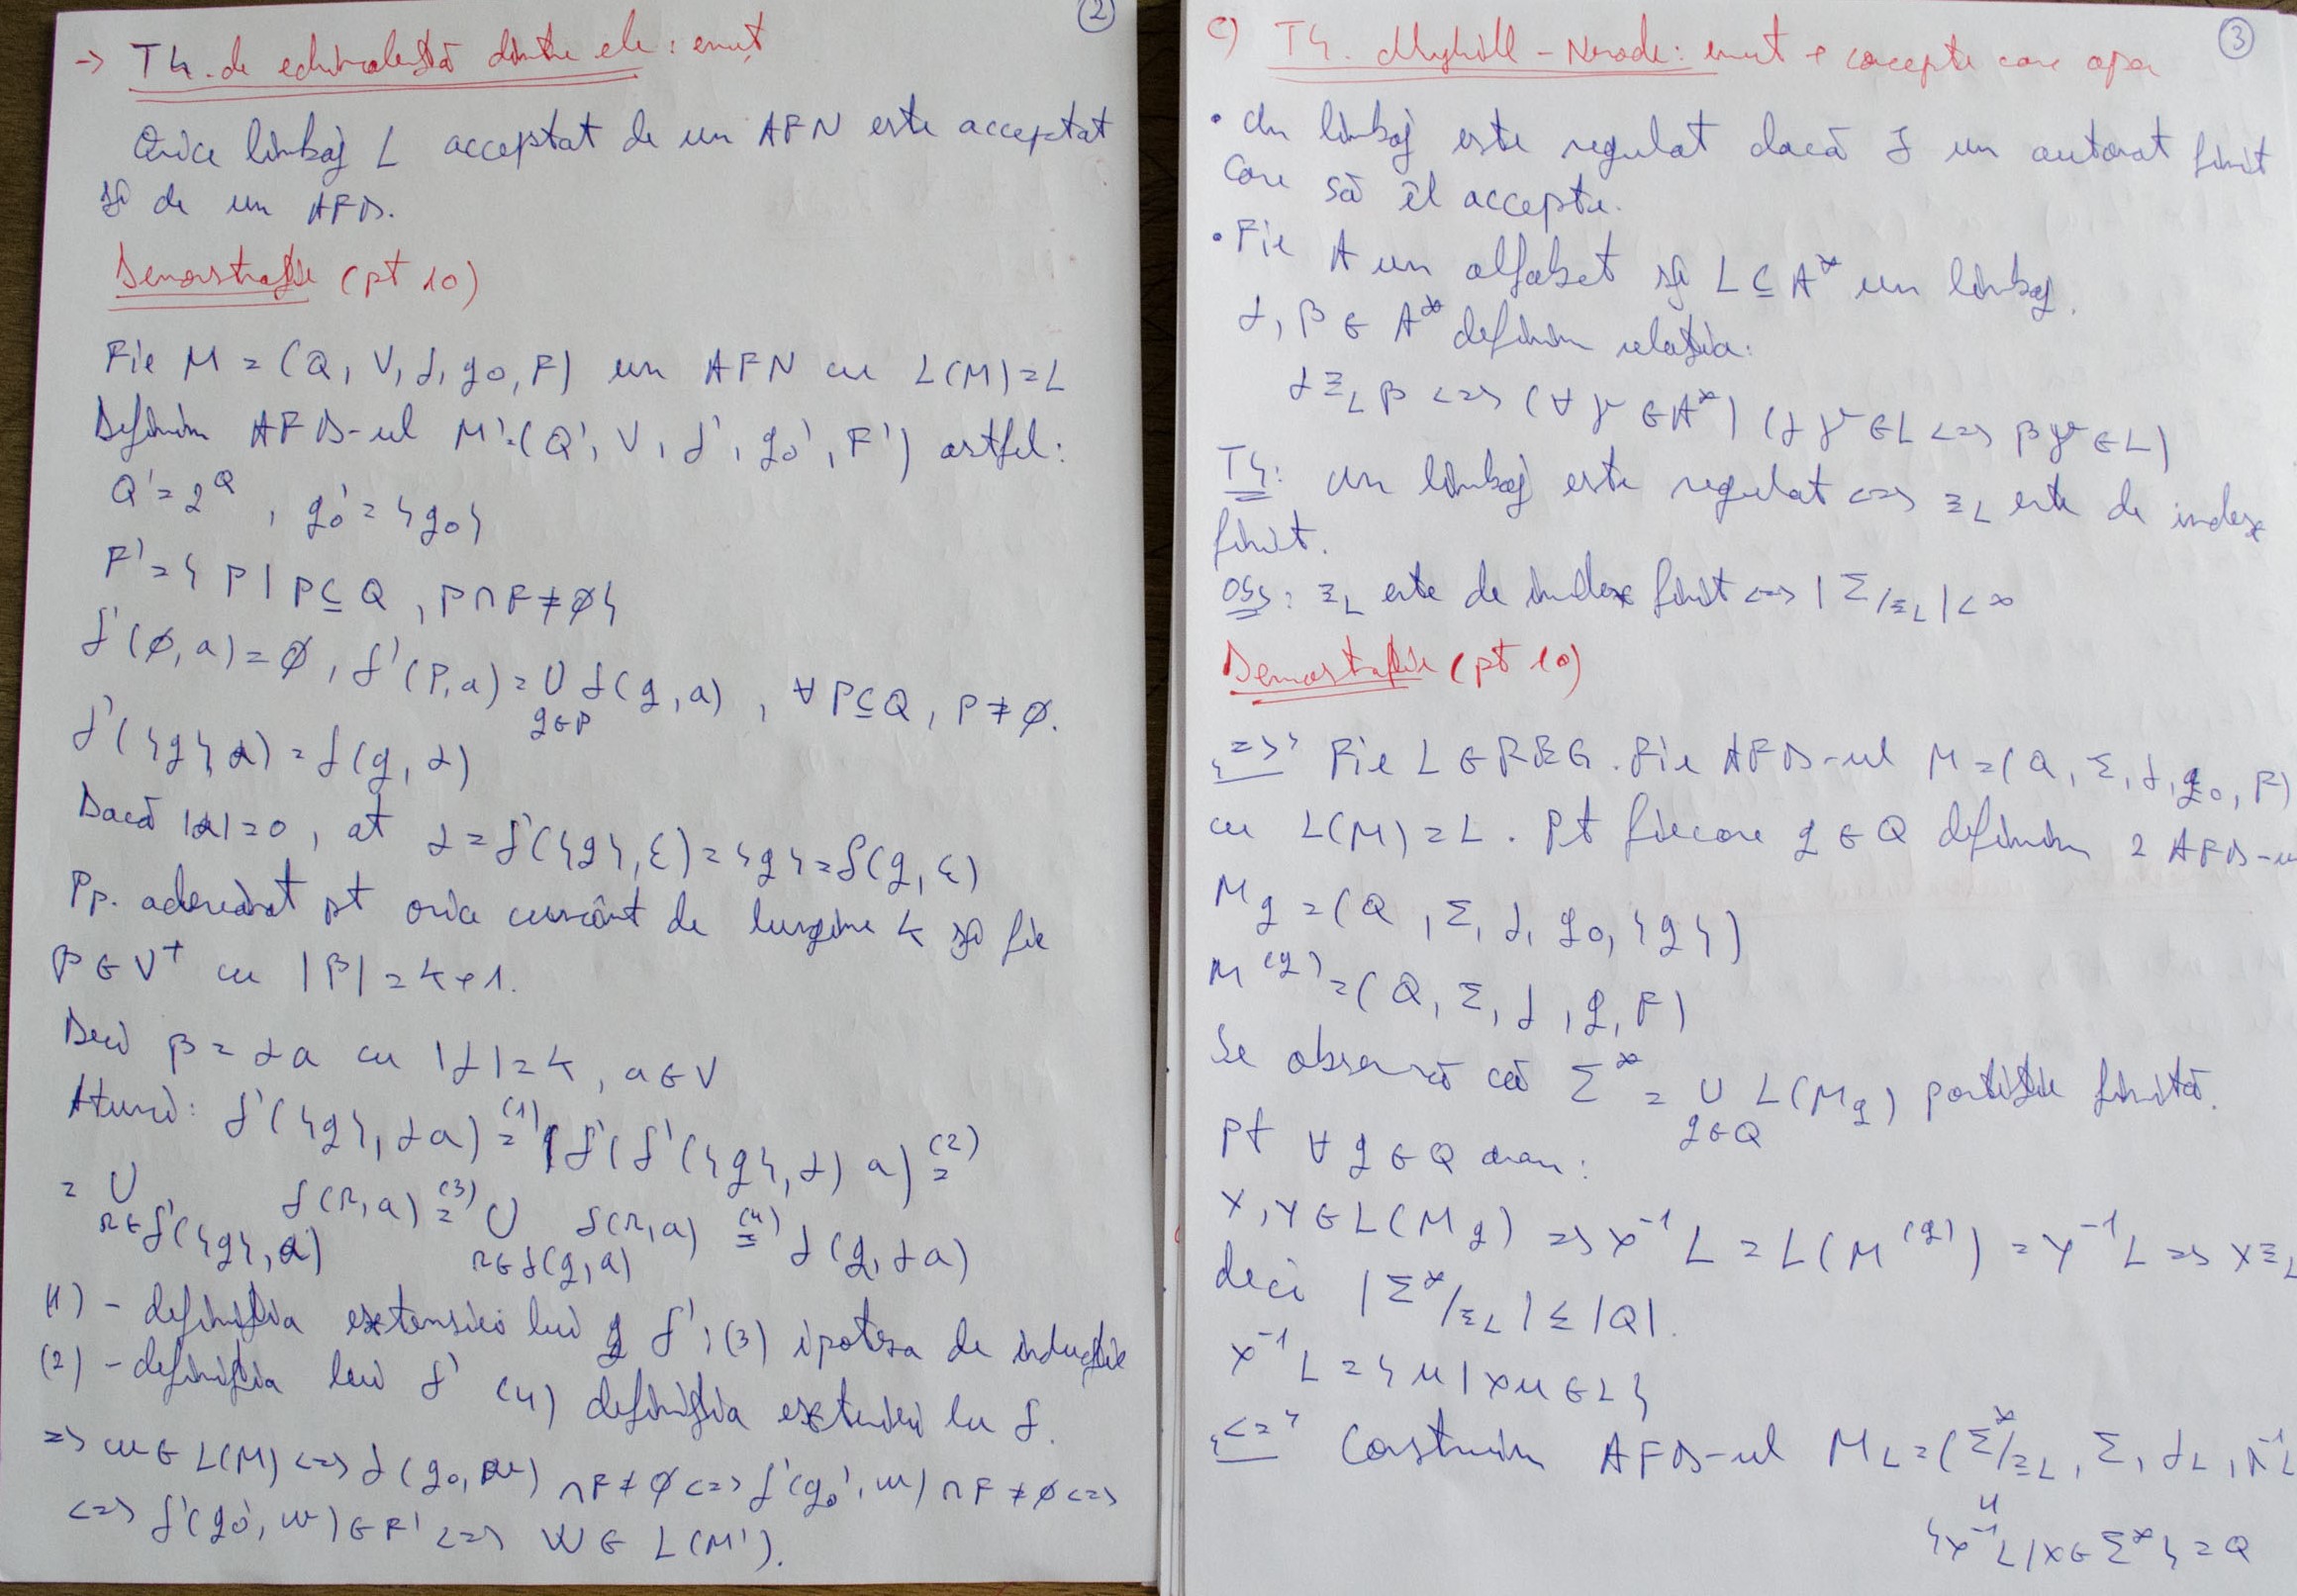 (2)
-> Th. de echivalență dintre ele: enunț
Orice limbaj L acceptat de un AFN este acceptat
și de un AFD.
Demonstrație (pt 10)
Fie M = (Q, V, δ, q0, F) un AFN cu L(M) = L
Definim AFD-ul M' = (Q', V, δ', q0', F') astfel:
Q' = 2^Q, q0' = {q0}
F' = {P | P ⊆ Q, P ∩ F ≠ ∅}
δ'(∅, a) = ∅, δ'(P, a) = ∪ δ(q, a), ∀ P ⊆ Q, P ≠ ∅.
q∈P
δ'({q} α) = δ(q, α)
Dacă |α| = 0, at α = δ'({q}, ε) = {q} = δ(q, ε)
Pp. adevărat pt orice cuvânt de lungime k și fie
β ∈ V⁺ cu |β| = k+1.
Deci β = αa cu |α| = k, a ∈ V
Atunci: δ'({q}, αa) =(1) δ'(δ'({q}, α) a) =(2)
= ∪ δ(r, a) =(3) ∪ δ(r, a) =(4) δ(q, αa)
r∈δ'({q}, α) r∈δ(q, α)
(1) - definiția extensiei lui δ'; (3) ipoteza de inducție
(2) - definiția lui δ' (4) definiția extensiei lu δ.
=> w ∈ L(M) <=> δ(q0, w) ∩ F ≠ ∅ <=> δ'(q0', w) ∩ F ≠ ∅ <=>
<=> δ'(q0', w) ∈ F' <=> w ∈ L(M').
(3)
c) Th. Myhill - Nerode: enunț + concepte care apar
• Un limbaj este regulat dacă ∃ un automat finit
care să îl accepte.
• Fie A un alfabet și L ⊆ A* un limbaj.
α, β ∈ A* definim relația:
α ≡L β <=> (∀ γ ∈ A*) (αγ ∈ L <=> βγ ∈ L)
Th: Un limbaj este regulat <=> ≡L este de index
finit.
Obs: ≡L este de index finit <=> |Σ/≡L| < ∞
Demonstrație (pt 10)
"=>" Fie L ∈ REG. Fie AFD-ul M = (Q, Σ, δ, q0, F)
cu L(M) = L. Pt fiecare q ∈ Q definim 2 AFD-u
Mq = (Q, Σ, δ, q0, {q})
M^(q) = (Q, Σ, δ, q, F)
Se observă că Σ* = ∪ L(Mq) partiție finită.
q∈Q
Pt ∀ q ∈ Q avem:
x, y ∈ L(Mq) => x⁻¹L = L(M^(q)) = y⁻¹L => x ≡L
deci |Σ*/≡L| ≤ |Q|.
x⁻¹L = {u | xu ∈ L}
"<=" Construim AFD-ul ML = (Σ*/≡L, Σ, δL, λ⁻¹L
"
{x⁻¹L | x ∈ Σ*} = Q